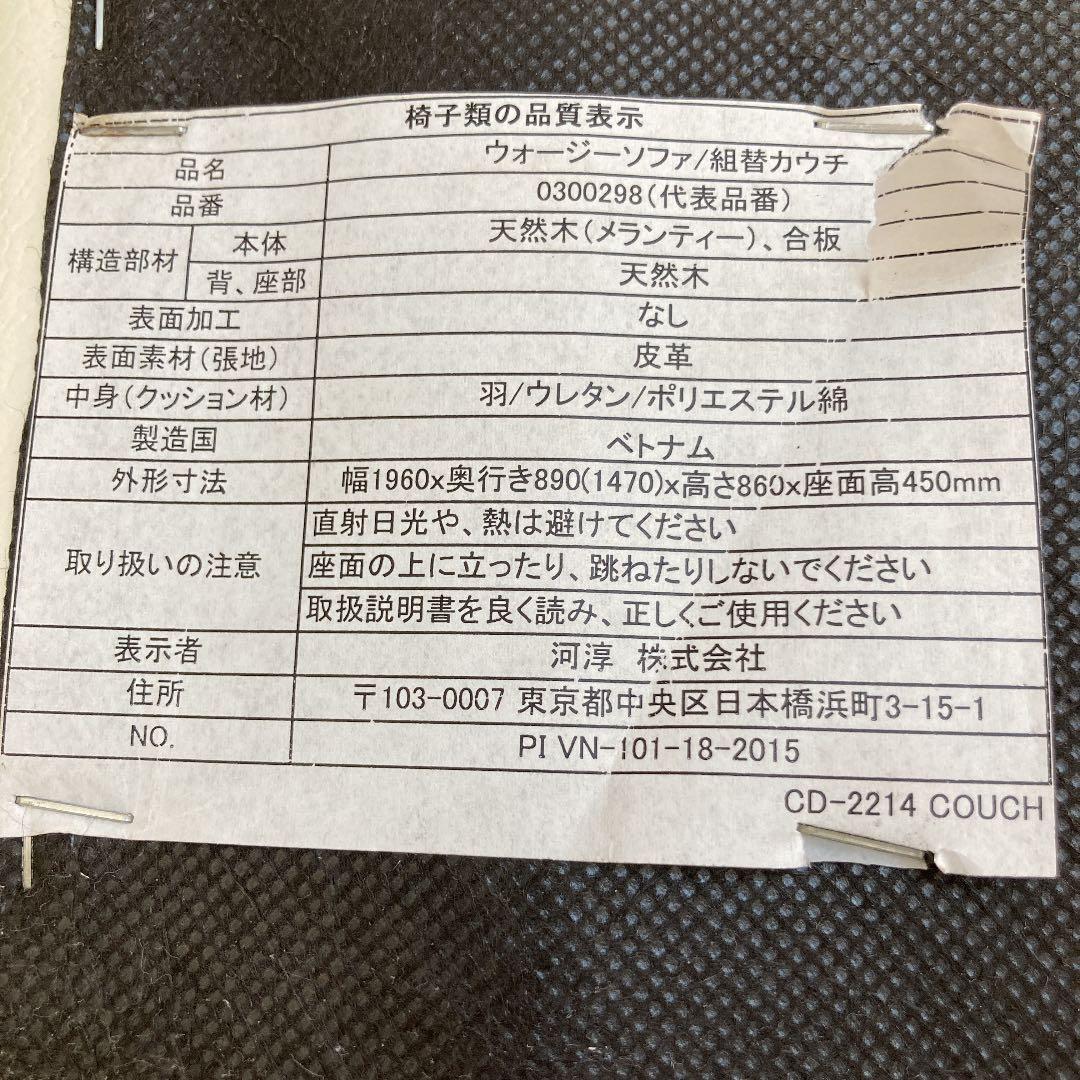 椅子類の品質表示
品名 ウォージーソファ/組替カウチ
品番 0300298(代表品番)
構造部材 本体 天然木(メランティー)、合板
背、座部 天然木
表面加工 なし
表面素材(張地) 皮革
中身(クッション材) 羽/ウレタン/ポリエステル綿
製造国 ベトナム
外形寸法 幅1960x奥行き890(1470)x高さ860x座面高450mm
取り扱いの注意 直射日光や、熱は避けてください
座面の上に立ったり、跳ねたりしないでください
取扱説明書を良く読み、正しくご使用ください
表示者 河淳 株式会社
住所 〒103-0007 東京都中央区日本橋浜町3-15-1
NO. PI VN-101-18-2015
CD-2214 COUCH